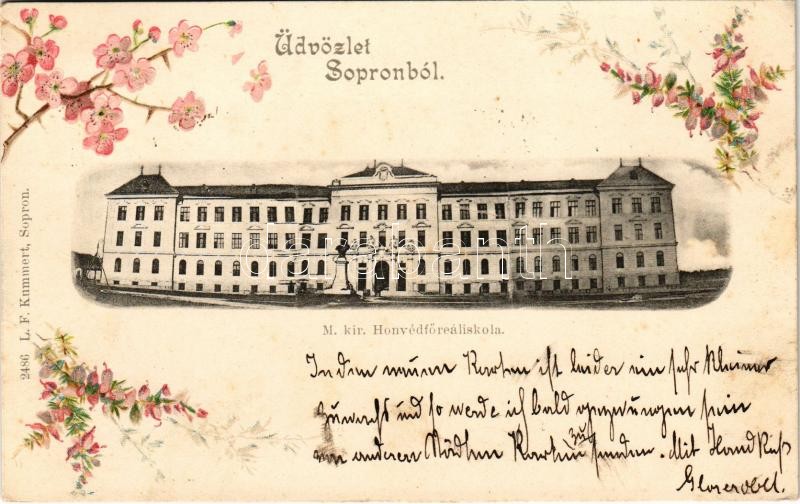 Üdvözlet
Sopronból.
darabanth
M. kir. Honvédfőreáliskola.
2486 L. F. Kummert, Sopron.
In den neuen Karten ist leider ein sehr kleiner
Zuwachs und so werde ich bald gezwungen sein
von anderen Städten Karten zu senden. Mit Handkuß